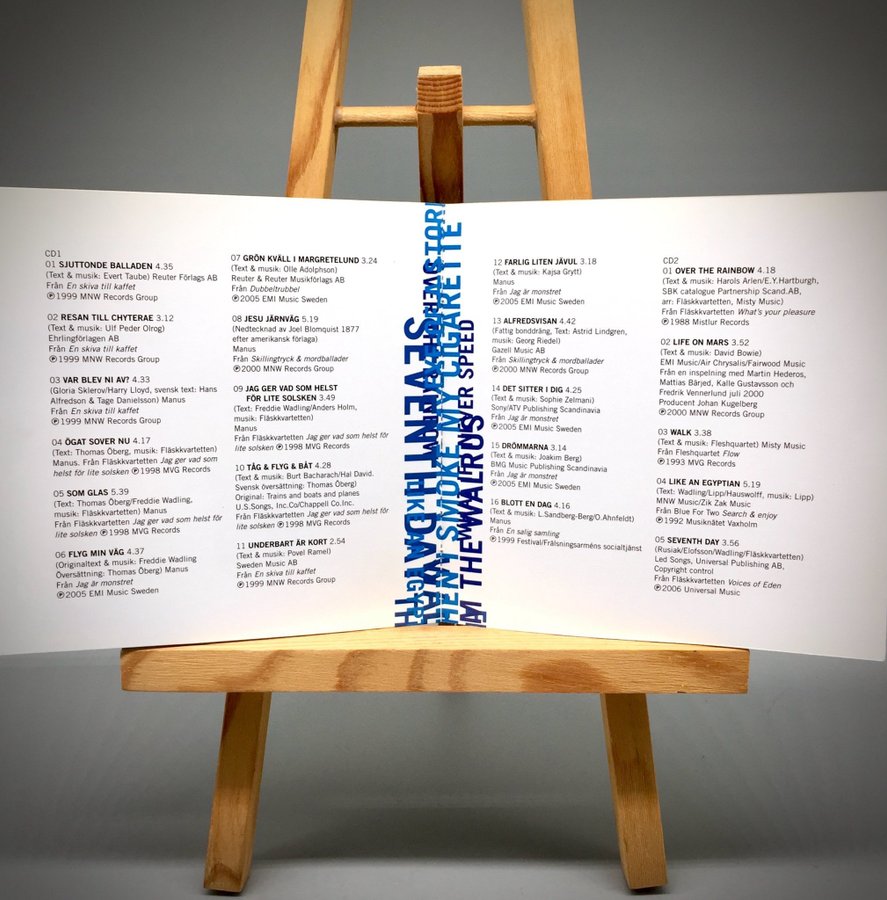 CD1
01 SJUTTONDE BALLADEN 4.35
(Text & musik: Evert Taube) Reuter Förlags AB
Från En skiva till kaffet
℗1999 MNW Records Group
02 RESAN TILL CHYTERAE 3.12
(Text & musik: Ulf Peder Olrog)
Ehrlingförlagen AB
Från En skiva till kaffet
℗1999 MNW Records Group
03 VAR BLEV NI AV? 4.33
(Gloria Sklerov/Harry Lloyd, svensk text: Hans
Alfredson & Tage Danielsson) Manus
Från En skiva till kaffet
℗1999 MNW Records Group
04 ÖGAT SOVER NU 4.17
(Text: Thomas Öberg, musik: Fläskkvartetten)
Manus. Från Fläskkvartetten Jag ger vad som
helst för lite solsken ℗1998 MVG Records
05 SOM GLAS 5.39
(Text: Thomas Öberg/Freddie Wadling,
musik: Fläskkvartetten) Manus
Från Fläskkvartetten Jag ger vad som helst för
lite solsken ℗1998 MVG Records
06 FLYG MIN VÄG 4.37
(Originaltext & musik: Freddie Wadling
Översättning: Thomas Öberg) Manus
Från Jag är monstret
℗2005 EMI Music Sweden
07 GRÖN KVÄLL I MARGRETELUND 3.24
(Text & musik: Olle Adolphson)
Reuter & Reuter Musikförlags AB
Från Dubbeltrubbel
℗2005 EMI Music Sweden
08 JESU JÄRNVÄG 5.19
(Nedtecknad av Joel Blomquist 1877
efter amerikansk förlaga)
Manus
Från Skillingtryck & mordballader
℗2000 MNW Records Group
09 JAG GER VAD SOM HELST
FÖR LITE SOLSKEN 3.49
(Text: Freddie Wadling/Anders Holm,
musik: Fläskkvartetten)
Manus
Från Fläskkvartetten Jag ger vad som helst för
lite solsken ℗1998 MVG Records
10 TÅG & FLYG & BÅT 4.28
(Text & musik: Burt Bacharach/Hal David.
Svensk översättning: Thomas Öberg)
Original: Trains and boats and planes
U.S.Songs, Inc.Co/Chappell Co.Inc.
Från Fläskkvartetten Jag ger vad som helst för
lite solsken ℗1998 MVG Records
11 UNDERBART ÄR KORT 2.54
(Text & musik: Povel Ramel)
Sweden Music AB
Från En skiva till kaffet
℗1999 MNW Records Group
SEVENTH DAY
WHEN I SMOKE MY CIGARETTE
I'M THE WALRUS
SPEED
12 FARLIG LITEN JÄVUL 3.18
(Text & musik: Kajsa Grytt)
Manus
Från Jag är monstret
℗2005 EMI Music Sweden
13 ALFREDSVISAN 4.42
(Fattig bonddräng, Text: Astrid Lindgren,
musik: Georg Riedel)
Gazell Music AB
Från Skillingtryck & mordballader
℗2000 MNW Records Group
14 DET SITTER I DIG 4.25
(Text & musik: Sophie Zelmani)
Sony/ATV Publishing Scandinavia
Från Jag är monstret
℗2005 EMI Music Sweden
15 DRÖMMARNA 3.14
(Text & musik: Joakim Berg)
BMG Music Publishing Scandinavia
Från Jag är monstret
℗2005 EMI Music Sweden
16 BLOTT EN DAG 4.16
(Text & musik: L.Sandberg-Berg/O.Ahnfeldt)
Manus
Från En salig samling
℗1999 Festival/Frälsningsarméns socialtjänst
CD2
01 OVER THE RAINBOW 4.18
(Text & musik: Harols Arlen/E.Y.Hartburgh,
SBK catalogue Partnership Scand.AB,
arr: Fläskkvartetten, Misty Music)
Från Fläskkvartetten What's your pleasure
℗1988 Mistlur Records
02 LIFE ON MARS 3.52
(Text & musik: David Bowie)
EMI Music/Air Chrysalis/Fairwood Music
Från en inspelning med Martin Hederos,
Mattias Bärjed, Kalle Gustavsson och
Fredrik Vennerlund juli 2000
Producent Johan Kugelberg
℗2000 MNW Records Group
03 WALK 3.38
(Text & musik: Fleshquartet) Misty Music
Från Fleshquartet Flow
℗1993 MVG Records
04 LIKE AN EGYPTIAN 5.19
(Text: Wadling/Lipp/Hauswolff, musik: Lipp)
MNW Music/Zik Zak Music
Från Blue For Two Search & enjoy
℗1992 Musiknätet Vaxholm
05 SEVENTH DAY 3.56
(Rusiak/Elofsson/Wadling/Fläskkvartetten)
Led Songs, Universal Publishing AB,
Copyright control
Från Fläskkvartetten Voices of Eden
℗2006 Universal Music